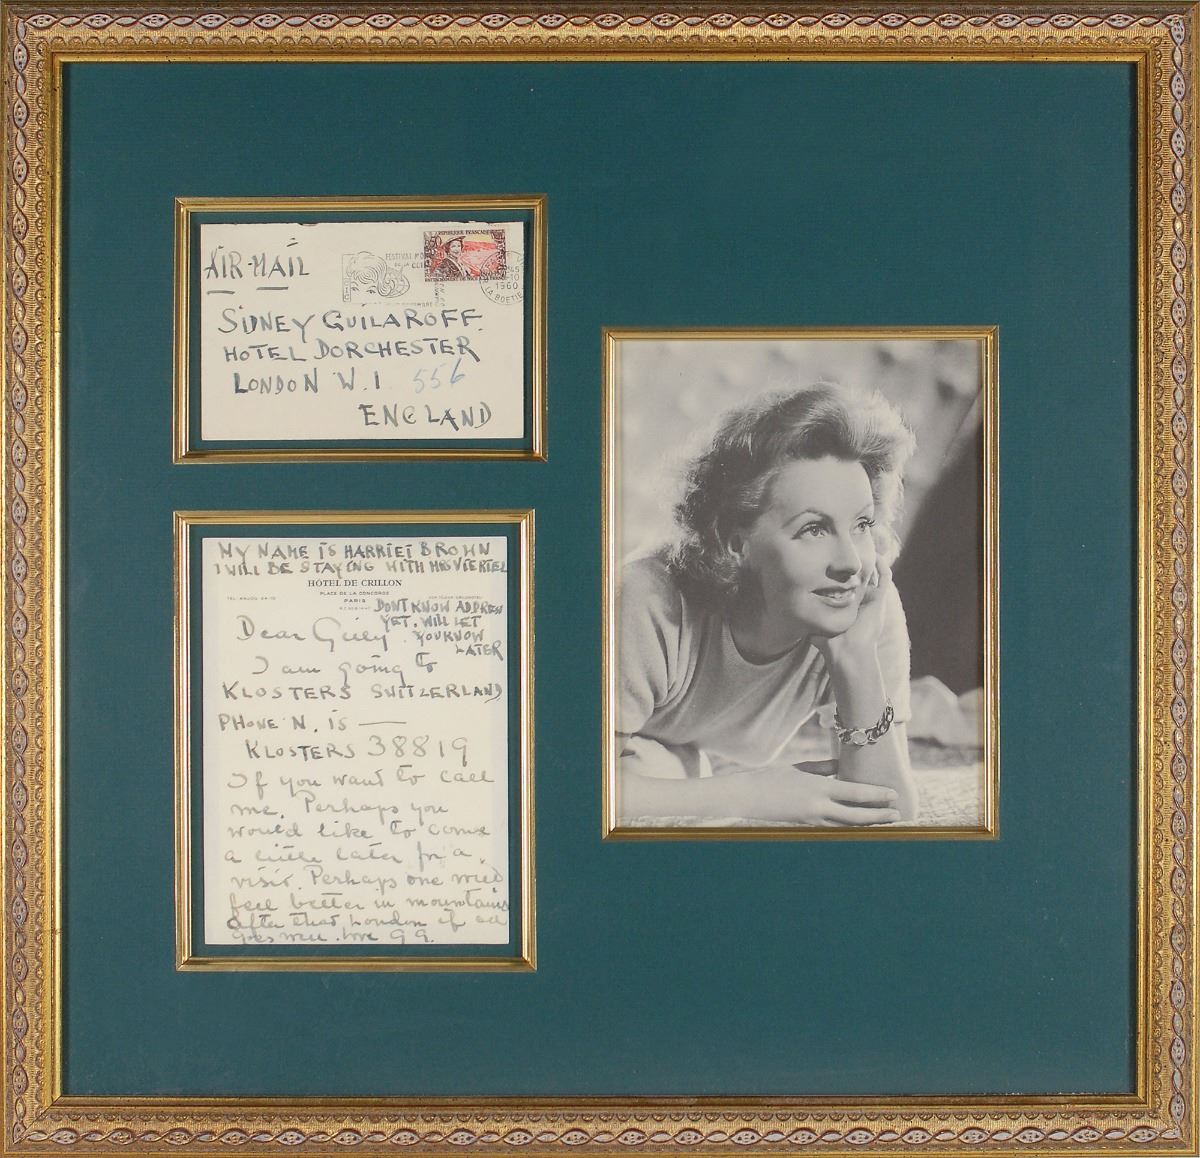 AIR-MAIL
REPUBLIQUE FRANÇAISE
FESTIVAL
DE LA
1960
LA BOETIE
SIDNEY GUILAROFF.
HOTEL DORCHESTER
LONDON W.1 556
ENGLAND
MY NAME IS HARRIET BROWN
I WILL BE STAYING WITH MRS VIERTEL
HÔTEL DE CRILLON
PLACE DE LA CONCORDE
PARIS
DONT KNOW ADDRESS
YET. WILL LET
YOU KNOW
LATER
Dear Guily.
I am going to
KLOSTERS SWITZERLAND
PHONE N. IS —
KLOSTERS 38819
If you want to call
me. Perhaps you
would like to come
a little later for a
visit. Perhaps one will
feel better in mountains
after that London if all
goes well. love G G.